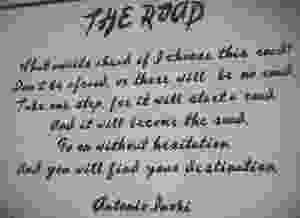 THE ROAD
What awaits ahead if I choose this road?
Don't be afraid, or there will be no road.
Take one step, for it will a road
And it will become the road.
Go on without hesitation
And you will find your destination.
Antonio Inoki